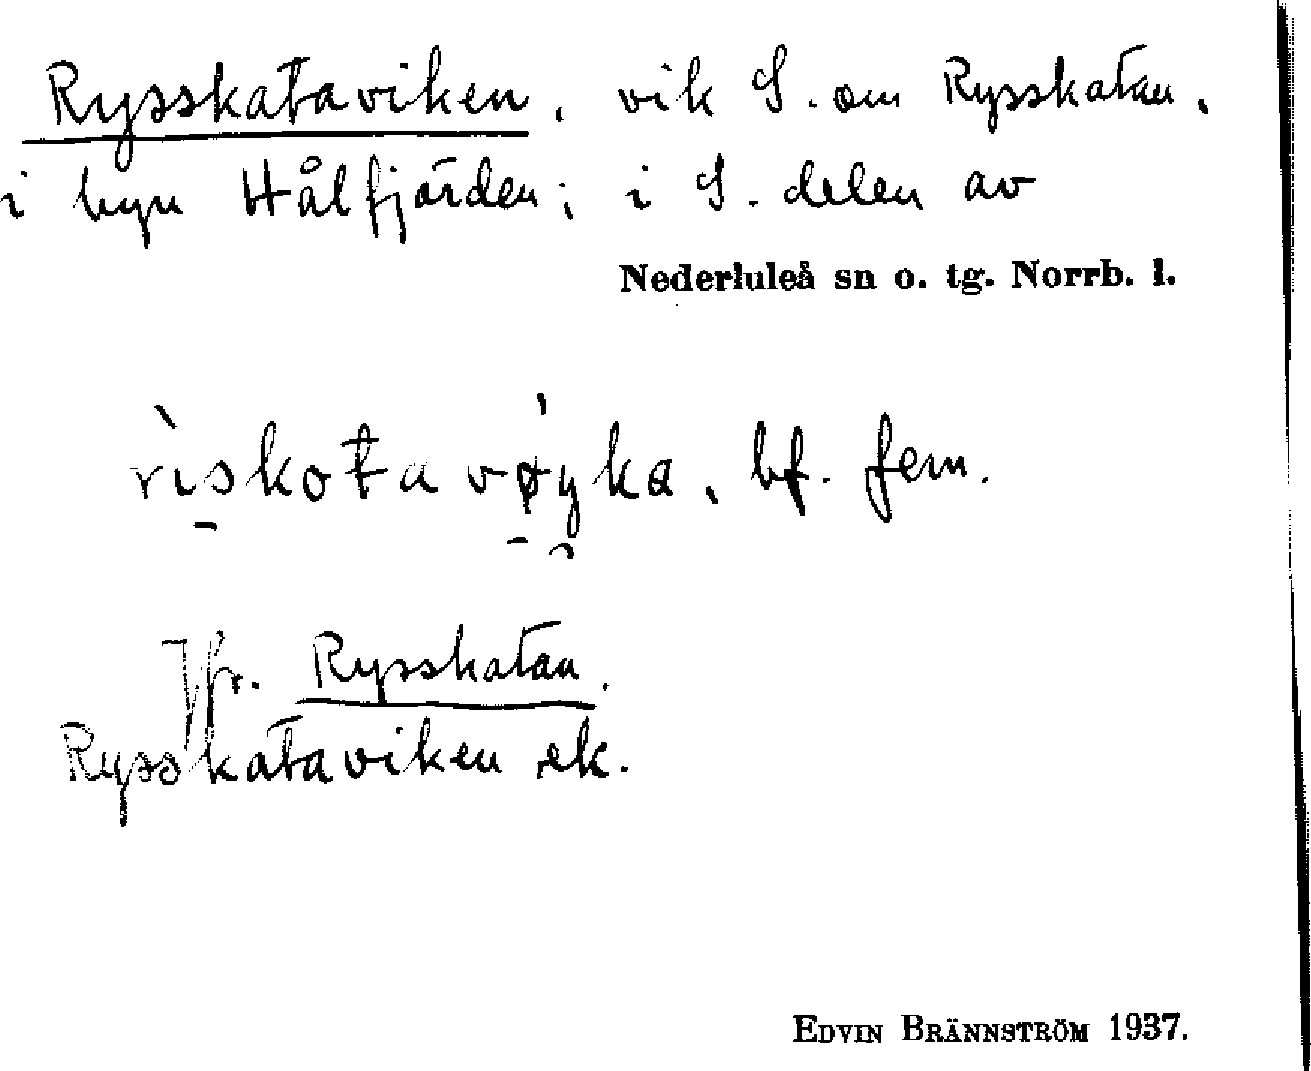 Rysskataviken, vik S. om Rysskatan,
i byn Hålfjärden; i S. delen av
Nederluleå sn o. tg. Norrb. l.
rìskota vø̀yka, bf. fem.
Jfr. Rysskatan.
Rysskataviken ek.
EDVIN BRÄNNSTRÖM 1937.